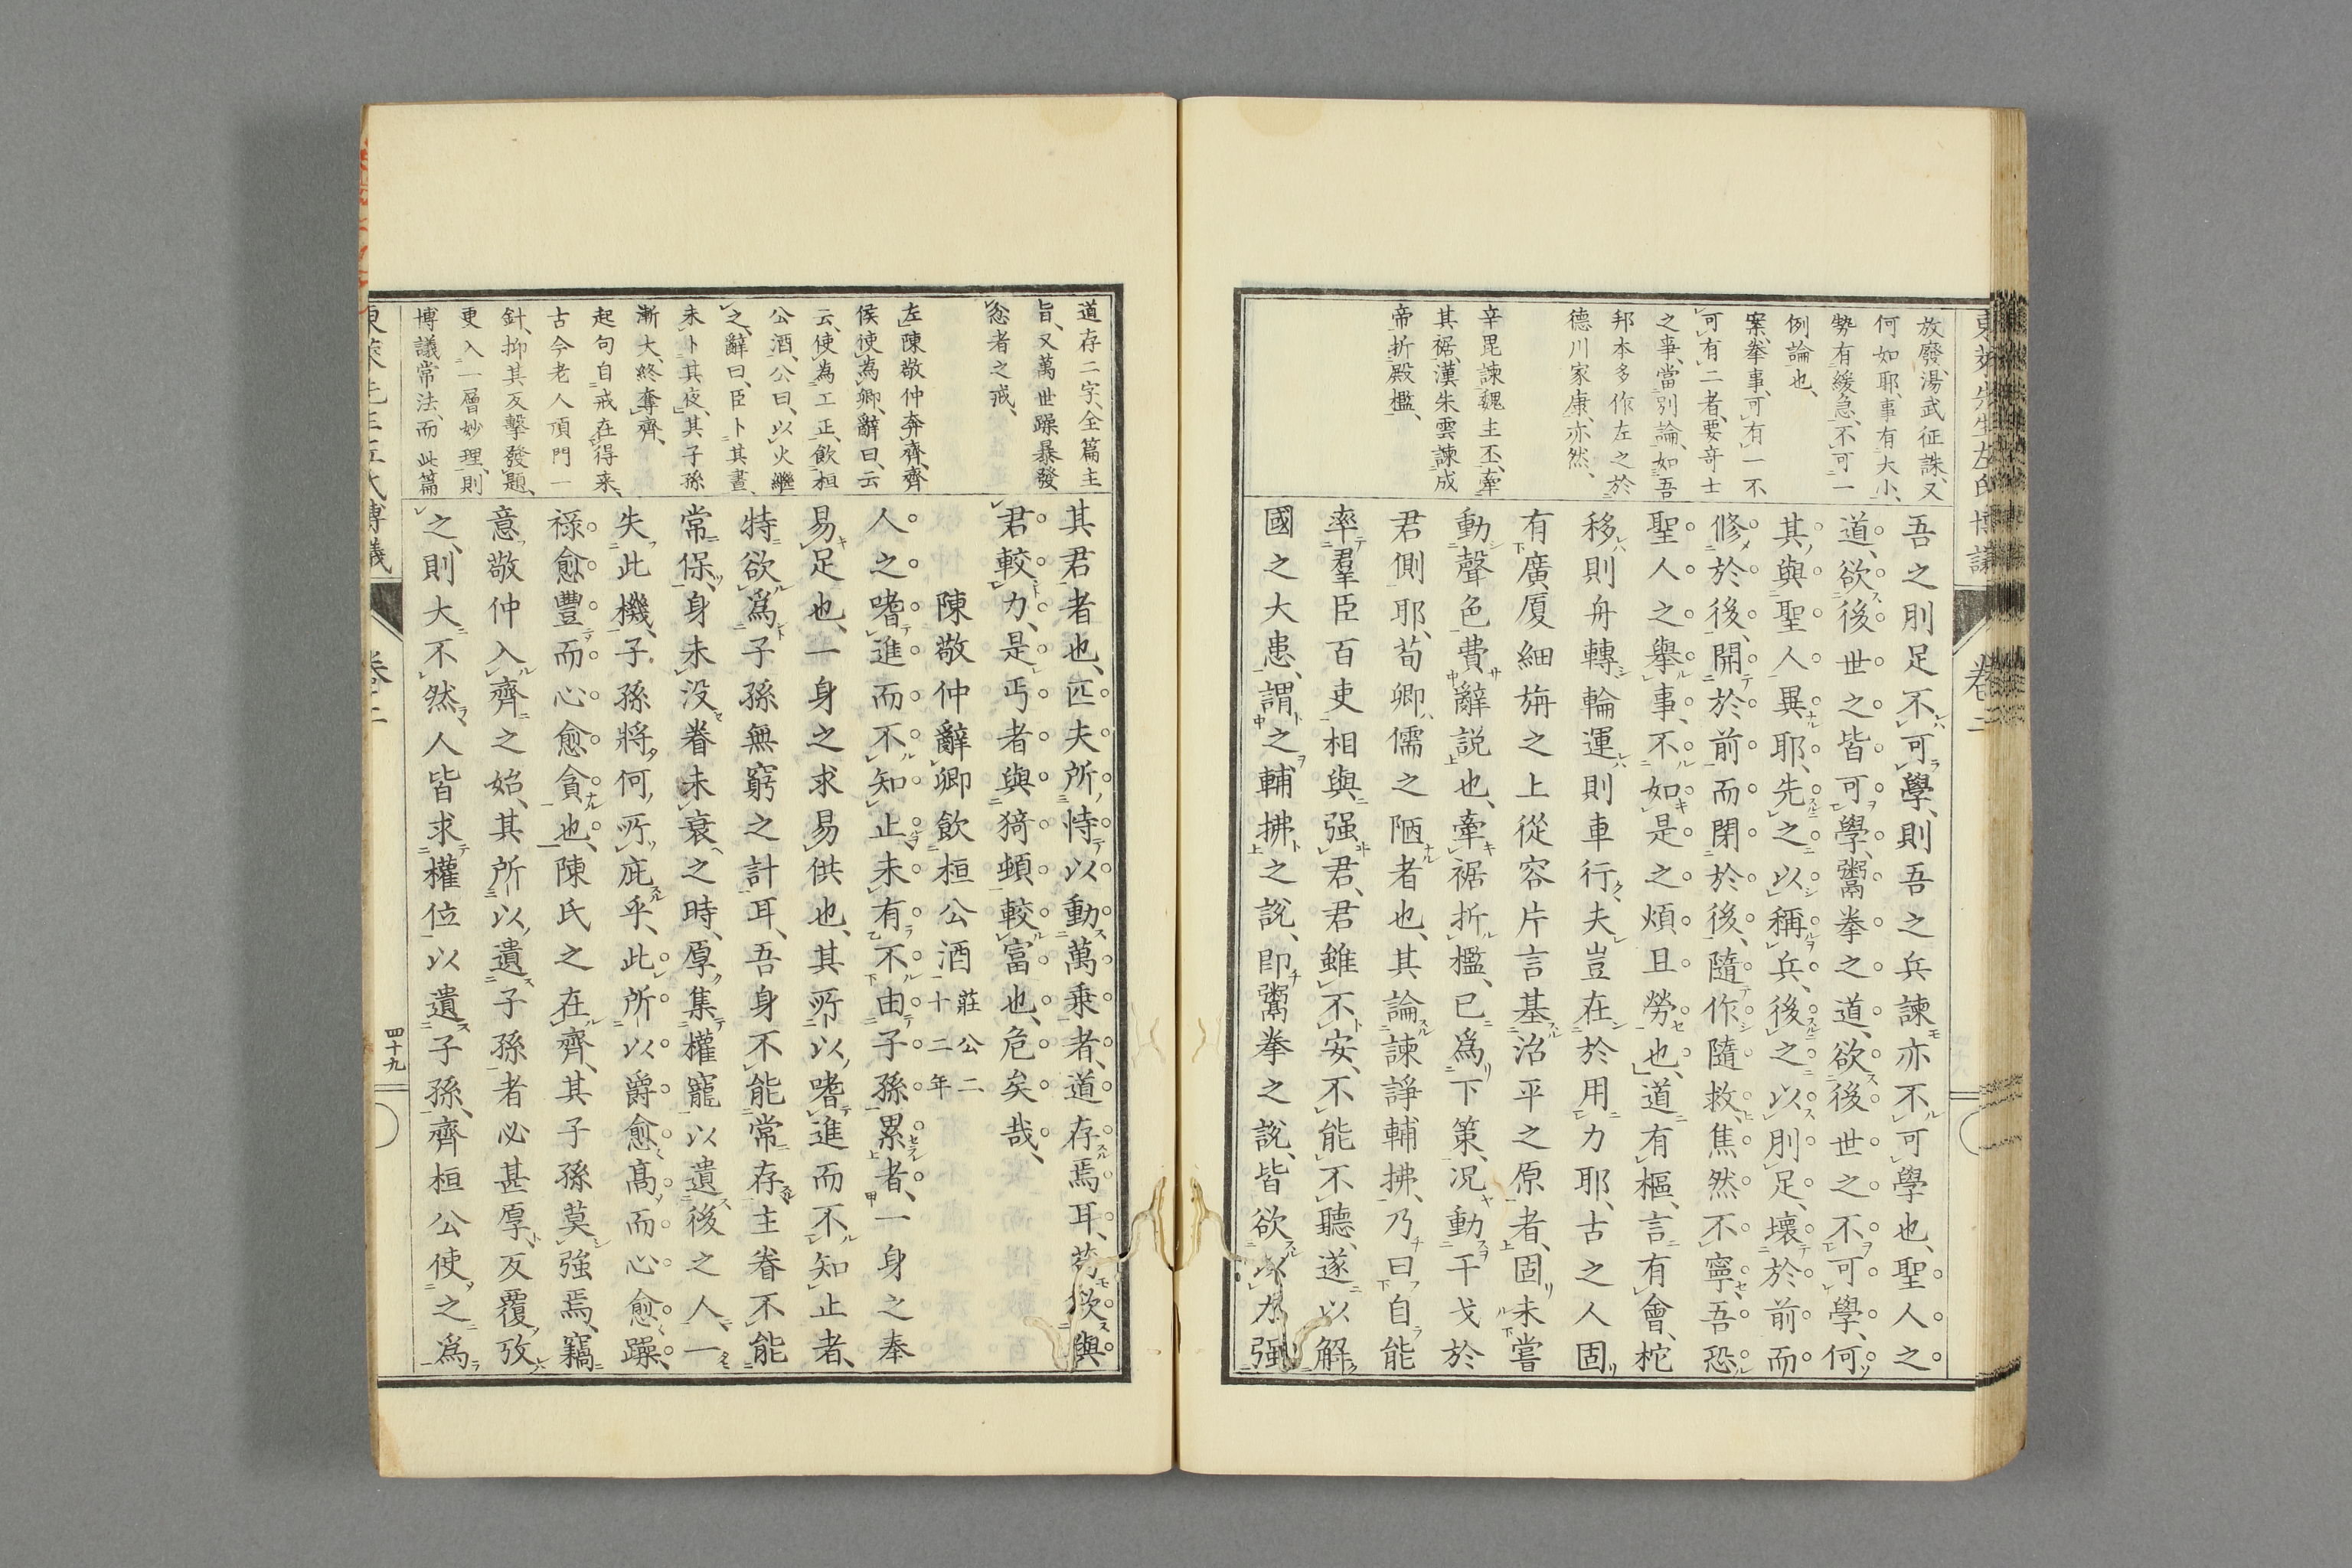 東萊先生左氏博議
卷二
放廢、湯武征誅、又
何如耶、事有大小、
勢有緩急、不可一
例論也、
案、拳事、可有一不
可有二者、要奇士
之事、當別論、如吾
邦本多作左之於
德川家康、亦然、
辛毘諫魏主丕、牽
其裾、漢朱雲諫成
帝、折殿檻、
吾之刖足不可學、則吾之兵諫亦不可學也、聖人之
道、欲後世之皆可學、鬻拳之道、欲後世之不可學、何
其與聖人異耶、先之以稱兵、後之以刖足、壞於前而
修於後、開於前而閉於後、隨作隨救、焦然不寧、吾恐
聖人之舉事、不如是之煩且勞也、道有樞、言有會、柁
移則舟轉、輪運則車行、夫豈在於用力耶、古之人固
有廣厦細旃之上從容片言基治平之原者、固未嘗
動聲色費辭説也、牽裾折檻、已爲下策、况動干戈於
君側耶、荀卿儒之陋者也、其論諫諍輔拂、乃曰自能
率羣臣百吏相與强君、君雖不安、不能不聽、遂以解
國之大患、謂之輔拂之説、即鬻拳之説、皆欲以力强
道存二字、全篇主
旨、又萬世躁暴發
忿者之戒、
左、陳敬仲奔齊、齊
侯使為卿、辭曰、云
云、使為工正、飲桓
公酒、公曰、以火繼
之、辭曰、臣卜其晝、
未卜其夜、其子孫
漸大、終奪齊、
起句自戒在得來、
古今老人頂門一
針、抑其反擊發題、
更入一層妙理、則
博議常法、而此篇
其君者也、匹夫所恃以動萬乘者、道存焉耳、苟欲與
君較力、是丐者與猗頓較富也、危矣哉、
陳敬仲辭卿飲桓公酒 莊公二十二年
人之嗜進而不知止、未有不由子孫累者、一身之奉
易足也、一身之求易供也、其所以嗜進而不知止者、
特欲爲子孫無窮之計耳、吾身不能常存、主眷不能
常保、身未没眷未衰之時、厚集權寵以遺後之人、一
失此機、子孫將何所庇乎、此所以爵愈高而心愈躁、
祿愈豐而心愈貪也、陳氏之在齊、其子孫莫強焉、竊
意、敬仲入齊之始、其所以遺子孫者必甚厚、反覆攷
之、則大不然、人皆求權位以遺子孫、齊桓公使之爲
卷二
四十九